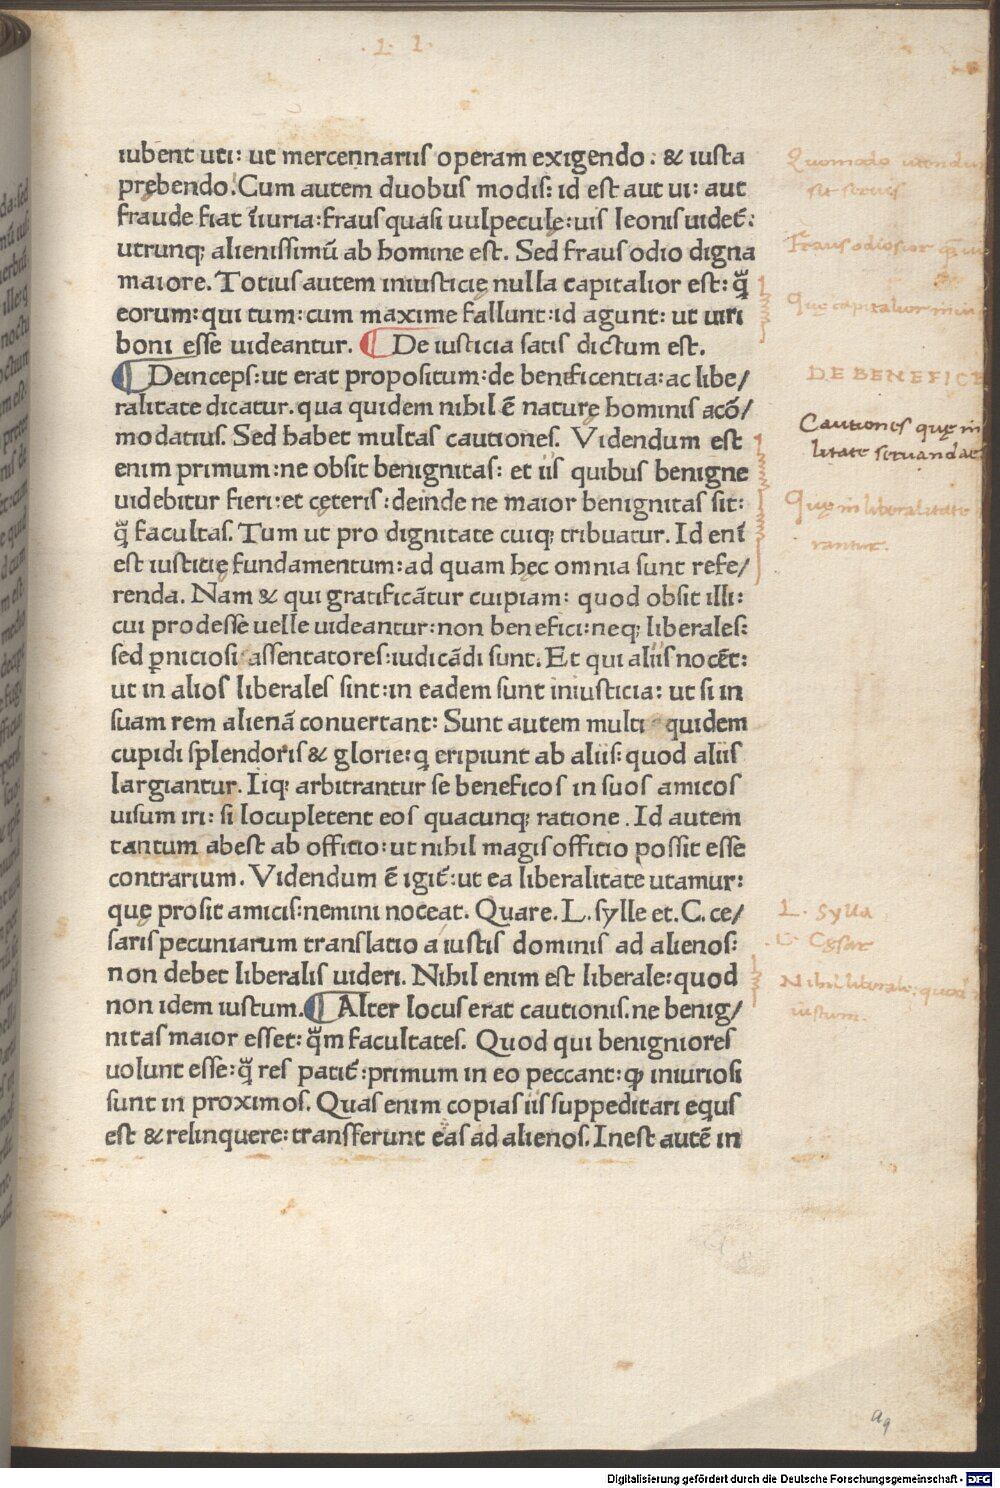 iubent uti: ut mercennariis operam exigendo: & iusta
prębendo. Cum autem duobus modis: id est aut ui: aut
fraude fiat ĩiuria: fraus quasi uulpeculę: uis leonis uidet̃:
utrunq; alienissimū ab homine est. Sed fraus odio digna
maiore. Totius autem iniusticię nulla capitalior est: q̃
eorum: qui tum: cum maxime fallunt: id agunt: ut uiri
boni esse uideantur. ¶ De iusticia satis dictum est.
¶ Deinceps: ut erat propositum: de beneficentia: ac libe/
ralitate dicatur. qua quidem nihil ē naturę hominis acō/
modatius. Sed habet multas cautiones. Videndum est
enim primum: ne obsit benignitas: et iis quibus benigne
uidebitur fieri: et cęteris: deinde ne maior benignitas sit:
q̃ facultas. Tum ut pro dignitate cuiq; tribuatur. Id eni̅
est iusticię fundamentum: ad quam hęc omnia sunt refe/
renda. Nam & qui gratificātur cuipiam: quod obsit illi:
cui prodesse uelle uideantur: non benefici: neq; liberales:
sed ꝑniciosi assentatores: iudicādi sunt. Et qui aliis nocēt:
ut in alios liberales sint: in eadem sunt iniusticia: ut si in
suam rem alienā conuertant: Sunt autem multi quidem
cupidi splendoris & glorie: q eripiunt ab aliis: quod aliis
largiantur. Iiq; arbitrantur se beneficos in suos amicos
uisum iri: si locupletent eos quacunq; ratione. Id autem
tantum abest ab officio: ut nihil magis officio possit esse
contrarium. Videndum ē igit̃: ut ea liberalitate utamur:
quę prosit amicis: nemini noceat. Quare. L. sylle et. C. ce/
saris pecuniarum translatio a iustis dominis ad alienos:
non debet liberalis uideri. Nihil enim est liberale: quod
non idem iustum. ¶ Alter locus erat cautionis. ne benig/
nitas maior esset: q̃m facultates. Quod qui benigniores
uolunt esse: q̃ res patit̃: primum in eo peccant: ꝙ iniuriosi
sunt in proximos. Quas enim copias iis suppeditari ęquus
est & relinquere: transferunt eas ad alienos. Inest autē in
Quomodo utendu
sit seruis
Fraus odiosior
Quę capitalior
DE BENEFICE
Cautiones quę in
litate seruandae
Quę in liberalitate
L. Sylla
C. Cęsar
Nihil liberale: quod
iustum.
a9
Digitalisierung gefördert durch die Deutsche Forschungsgemeinschaft - DFG